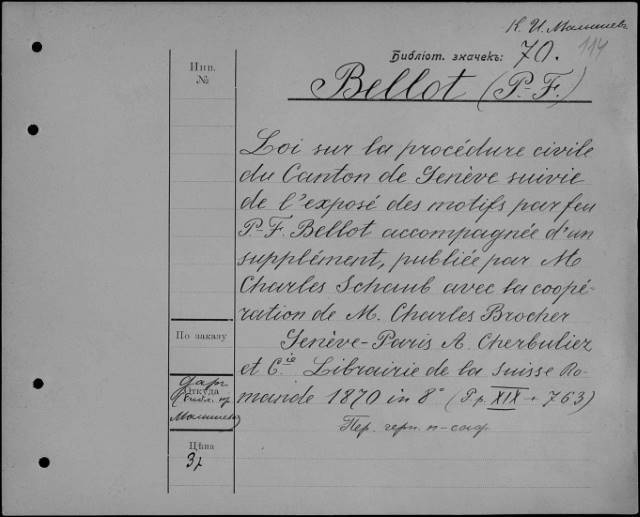 К. И. Малышев
Библіот. значекъ: 70. 114
Инв.
№
Bellot (P.-F.)
Loi sur la procédure civile
du Canton de Genève suivie
de l'exposé des motifs par feu
P.-F. Bellot accompagnée d'un
supplément, publiée par M
Charles Schaub avec la coopé-
ration de M. Charles Brocher
Genève-Paris A. Cherbuliez
et C.ie Librairie de la Suisse Ro-
mande 1870 in 8° (Pp. XIX + 763)
Пер. черн. п-саф.
По заказу
Откуда
Малышева
Цѣна
3р